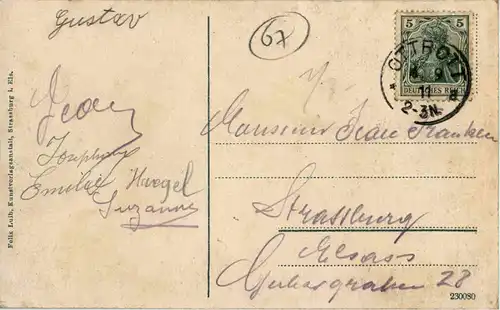 Gustav
67
5 5
DEUTSCHES REICH
OTTROTT
9
11
2-3N
Jean
Joséphine
Emilie Haegel
Suzanne
Monsieur Jean Franken
Strassburg
Elsass
28
Felix Luib, Kunstverlagsanstalt, Strassburg i. Els.
230080